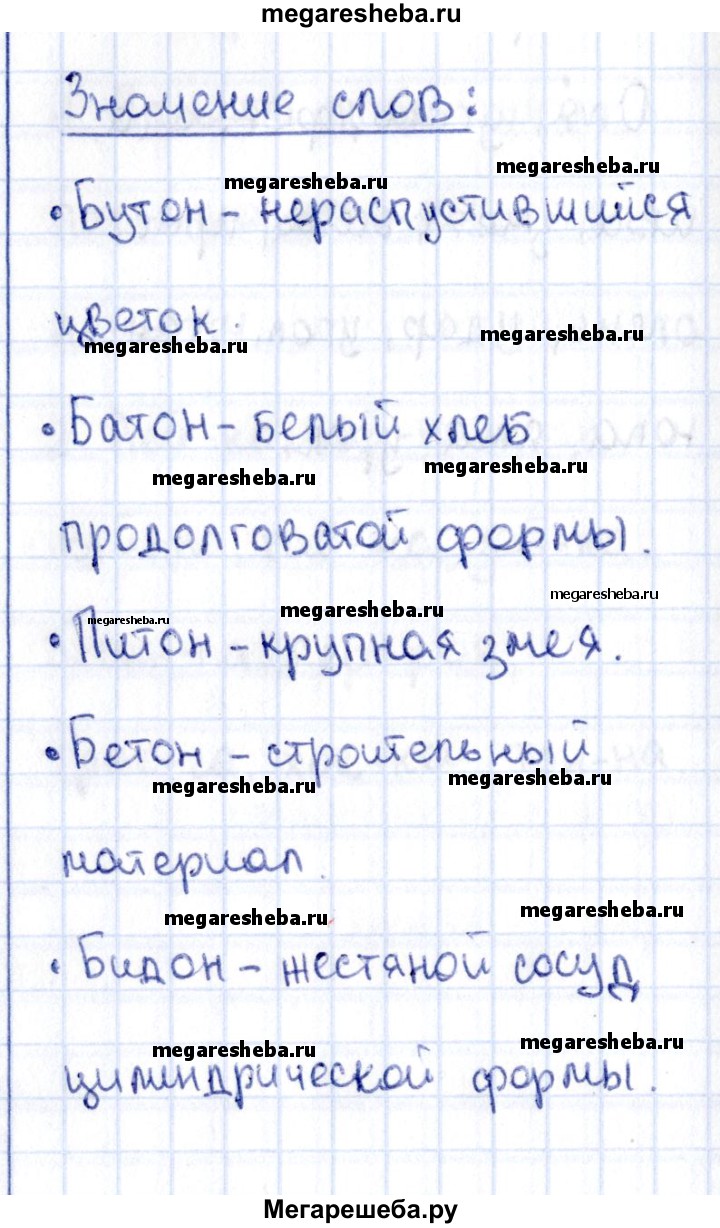 megaresheba.ru
Значение слов:
megaresheba.ru
megaresheba.ru
• Бутон – нераспустившийся
цветок.
megaresheba.ru
megaresheba.ru
• Батон – белый хлеб
megaresheba.ru
megaresheba.ru
продолговатой формы.
megaresheba.ru
megaresheba.ru
megaresheba.ru
• Питон – крупная змея.
• Бетон – строительный
megaresheba.ru
megaresheba.ru
материал.
megaresheba.ru
megaresheba.ru
• Бидон – жестяной сосуд
megaresheba.ru
megaresheba.ru
цилиндрической формы.
Мегарешеба.ру